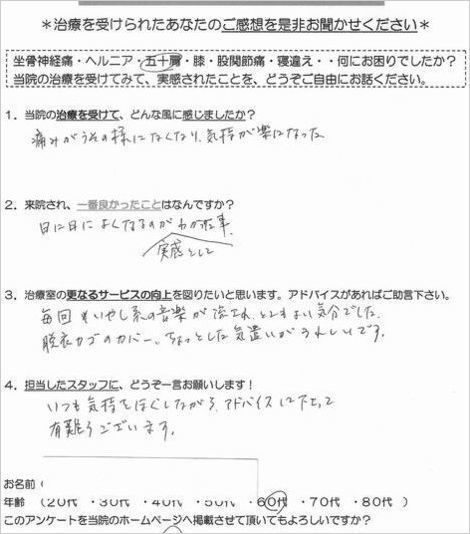 ＊治療を受けられたあなたのご感想を是非お聞かせください＊
坐骨神経痛・ヘルニア・五十肩・膝・股関節痛・寝違え・・何にお困りでしたか？
当院の治療を受けてみて、実感されたことを、どうぞご自由にお話ください。
1．当院の治療を受けて、どんな風に感じましたか？
痛みがうその様になくなり、気持が楽になった
2．来院され、一番良かったことはなんですか？
日に日によくなるのがわかる事
実感として
3．治療室の更なるサービスの向上を図りたいと思います。アドバイスがあればご助言下さい。
毎回 いやし系の音楽が流され、とてもよい気分でした。
脱衣カゴのカバー、ちょっとした気遣いがうれしいです。
4．担当したスタッフに、どうぞ一言お願いします！
いつも気持をほぐしながら、アドバイス下さって
有難うございます。
お名前（
年齢 （20代 ・30代 ・40代 ・50代 ・60代 ・70代 ・80代 ）
このアンケートを当院のホームページへ掲載させて頂いてもよろしいですか？